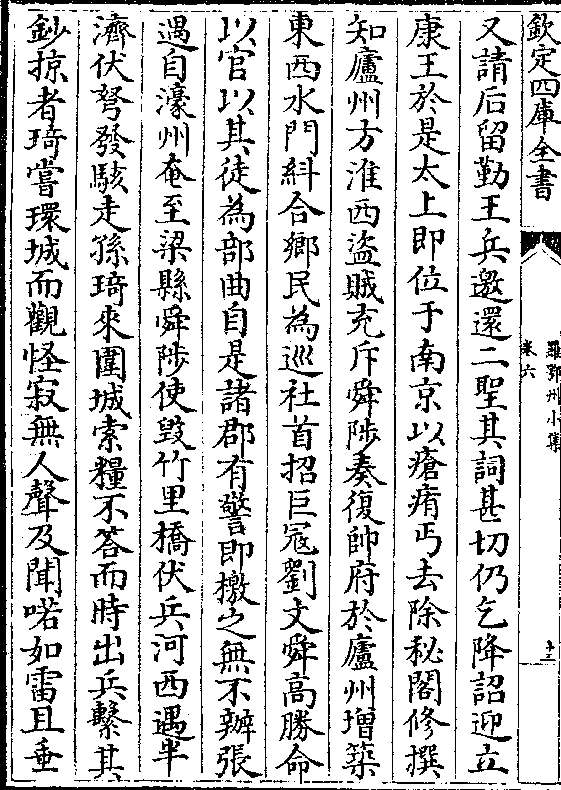 欽定四庫全書
羅鄂州小集
卷六
十三
又請后留勤王兵邀還二聖其詞甚切仍乞降詔迎立
康王於是太上即位于南京以瘡痏丐去除秘閣修撰
知廬州方淮西盜賊充斥舜陟奏復帥府於廬州增築
東西水門糾合鄉民為巡社首招巨冦劉文舜高勝命
以官以其徒為部曲自是諸郡有警即檄之無不辦張
遇自濠州奄至梁縣舜陟使毀竹里橋伏兵河西遇半
濟伏弩發駭走孫琦來圍城索糧不答而時出兵繫其
鈔掠者琦嘗環城而觀怪寂無人聲及聞喏如雷且垂